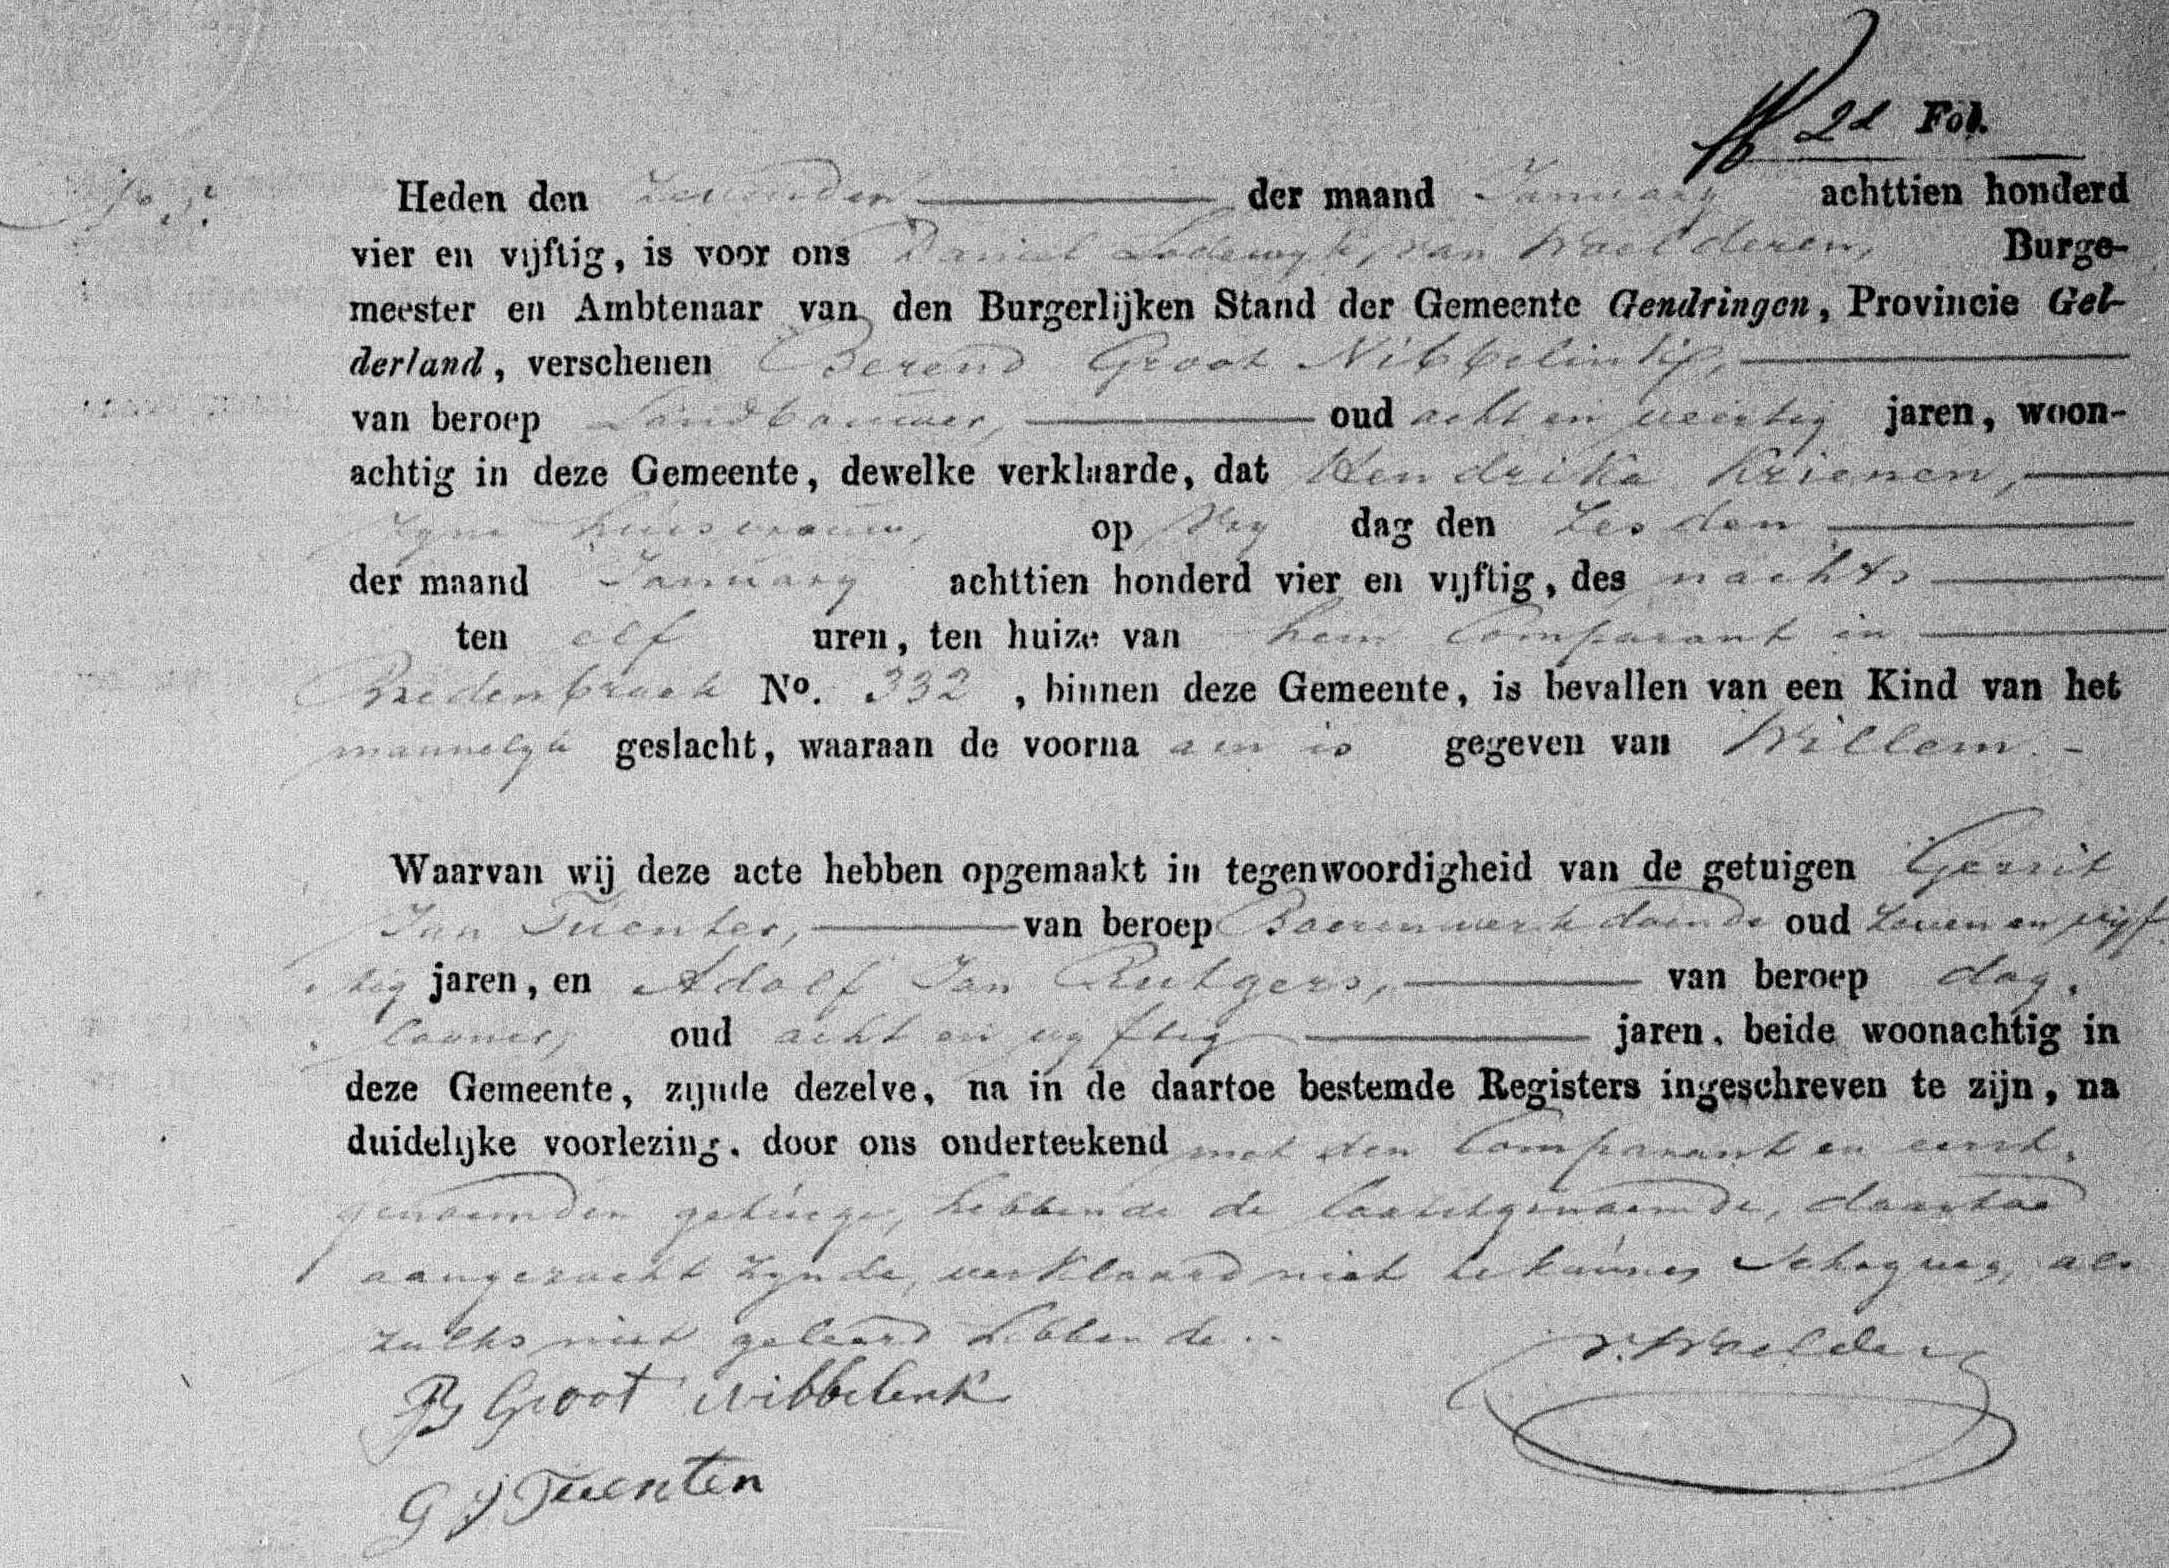 2d Fol.
Heden den Zevenden der maand January achttien honderd
vier en vijftig, is voor ons Daniel Lodewyk van Waelderen, Burge-
meester en Ambtenaar van den Burgerlijken Stand der Gemeente Gendringen, Provincie Gel-
derland, verschenen Berend Groot Nibbelink,
van beroep Landbouwer, oud acht en veertig jaren, woon-
achtig in deze Gemeente, dewelke verklaarde, dat Hendrika Krienen,
zyne huisvrouw, op Vry dag den Zesden
der maand January achttien honderd vier en vijftig, des nachts
ten elf uren, ten huize van hem Comparant in
Bredenbroek No. 332, binnen deze Gemeente, is bevallen van een Kind van het
mannelyk geslacht, waaraan de voorna am is gegeven van Willem. -
Waarvan wij deze acte hebben opgemaakt in tegenwoordigheid van de getuigen Gerrit
Jan Tuenter, van beroep Boerenwerk doende oud zeven en vyf
tig jaren, en Adolf Jan Rutgers, van beroep dag.
looner, oud acht en vyftig jaren, beide woonachtig in
deze Gemeente, zijnde dezelve, na in de daartoe bestemde Registers ingeschreven te zijn, na
duidelijke voorlezing, door ons onderteekend met den Comparant en eerst.
genoemden getuige, hebbende de laatstgenoemde, daartoe
aangezocht zynde, verklaard niet te kunnen Schryven, als
zulks niet geleerd hebbende..
v. Waelderen
B Groot Nibbelenk
G J Tuenten